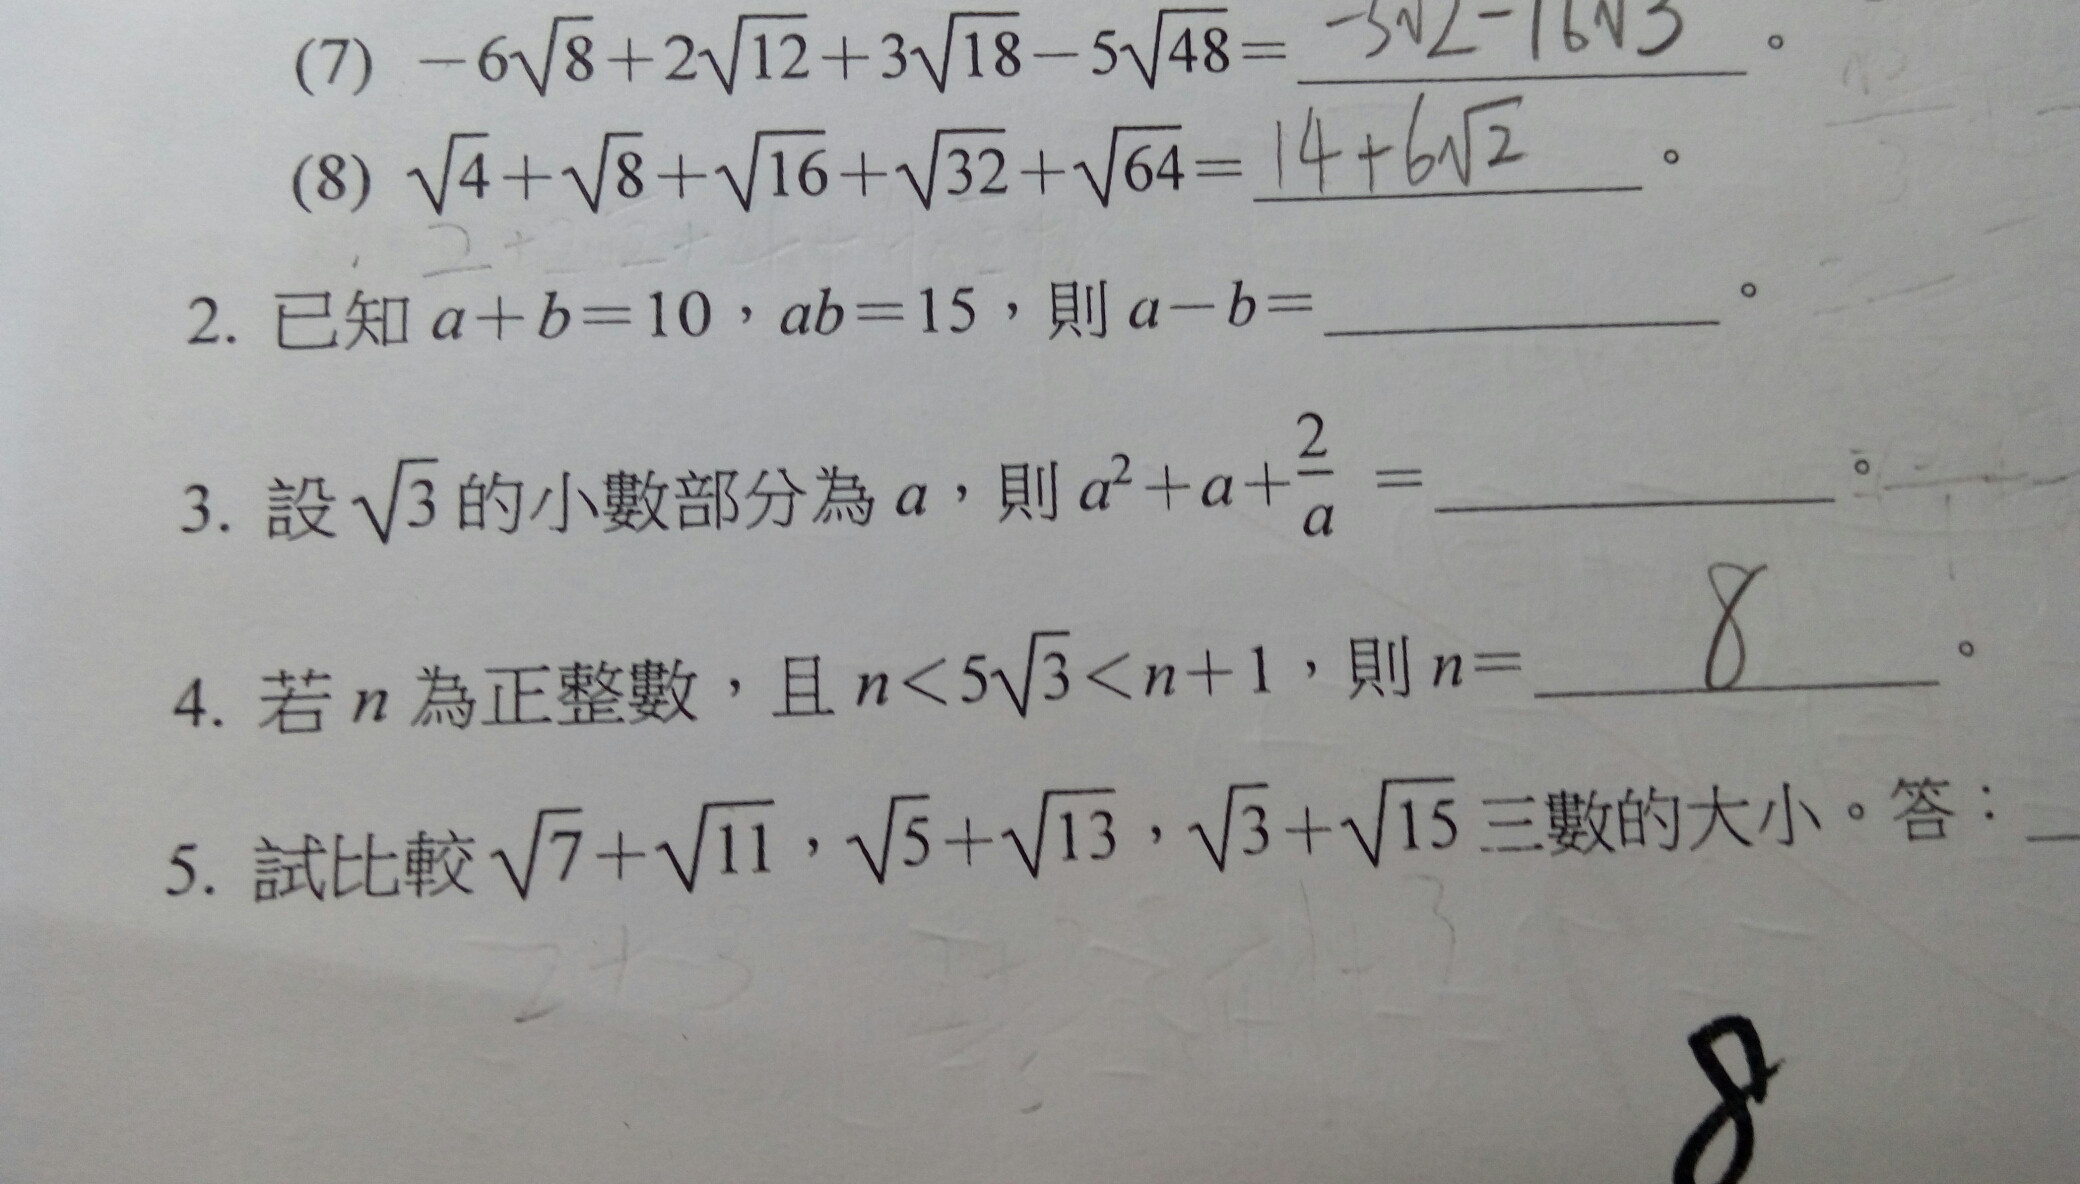 (7) －6√8＋2√12＋3√18－5√48＝ -3√2-16√3 。
(8) √4＋√8＋√16＋√32＋√64＝ 14+6√2 。
2. 已知 a＋b＝10，ab＝15，則 a－b＝ 。
3. 設 √3 的小數部分為 a，則 a²＋a＋2/a ＝ 。
4. 若 n 為正整數，且 n＜5√3＜n＋1，則 n＝ 8 。
5. 試比較 √7＋√11，√5＋√13，√3＋√15 三數的大小。答：
8